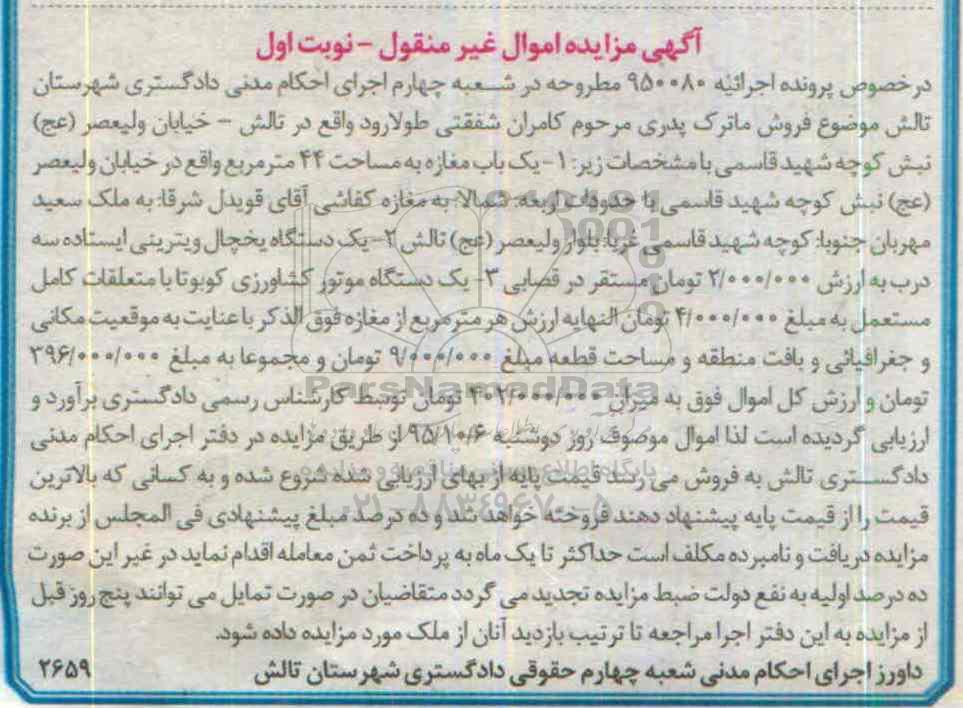 آگهی مزایده اموال غیر منقول - نوبت اول
درخصوص پرونده اجرائیه ۹۵۰۰۸۰ مطروحه در شعبه چهارم اجرای احکام مدنی دادگستری شهرستان
تالش موضوع فروش ماترک پدری مرحوم کامران شفقتی طولارود واقع در تالش - خیابان ولیعصر (عج)
نبش کوچه شهید قاسمی با مشخصات زیر: ۱- یک باب مغازه به مساحت ۴۴ متر مربع واقع در خیابان ولیعصر
(عج) نبش کوچه شهید قاسمی با حدودات اربعه: شمالا: به مغازه کفاشی آقای قویدل شرقا: به ملک سعید
مهربان جنوبا: کوچه شهید قاسمی غربا: بلوار ولیعصر (عج) تالش ۲- یک دستگاه یخچال ویترینی ایستاده سه
درب به ارزش ۲/۰۰۰/۰۰۰ تومان مستقر در قصابی ۳- یک دستگاه موتور کشاورزی کوبوتا با متعلقات کامل
مستعمل به مبلغ ۴/۰۰۰/۰۰۰ تومان النهایه ارزش هر متر مربع از مغازه فوق الذکر با عنایت به موقعیت مکانی
و جغرافیائی و بافت منطقه و مساحت قطعه مبلغ ۹/۰۰۰/۰۰۰ تومان و مجموعا به مبلغ ۳۹۶/۰۰۰/۰۰۰
تومان و ارزش کل اموال فوق به میزان ۴۰۲/۰۰۰/۰۰۰ تومان توسط کارشناس رسمی دادگستری برآورد و
ارزیابی گردیده است لذا اموال موصوف روز دوشنبه ۹۵/۱۰/۶ از طریق مزایده در دفتر اجرای احکام مدنی
دادگستری تالش به فروش می رسد قیمت پایه از بهای ارزیابی شده شروع شده و به کسانی که بالاترین
قیمت را از قیمت پایه پیشنهاد دهند فروخته خواهد شد و ده درصد مبلغ پیشنهادی فی المجلس از برنده
مزایده دریافت و نامبرده مکلف است حداکثر تا یک ماه به پرداخت ثمن معامله اقدام نماید در غیر این صورت
ده درصد اولیه به نفع دولت ضبط مزایده تجدید می گردد متقاضیان در صورت تمایل می توانند پنج روز قبل
از مزایده به این دفتر اجرا مراجعه تا ترتیب بازدید آنان از ملک مورد مزایده داده شود.
داورز اجرای احکام مدنی شعبه چهارم حقوقی دادگستری شهرستان تالش ۲۶۵۹
ParsNamadData
۰۲۱-۸۸۳۴۹۶۷۰-۵